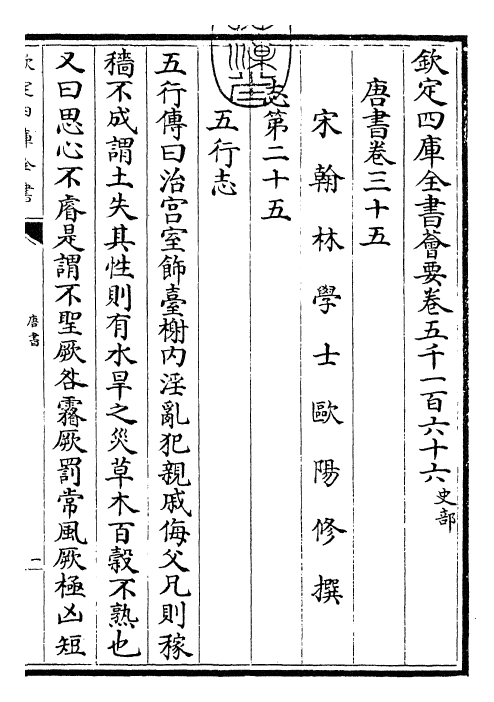 欽定四庫全書薈要卷五千一百六十六 史部
唐書卷三十五
宋翰林學士歐陽修撰
志第二十五
五行志
五行傳曰治宮室飾臺榭内淫亂犯親戚侮父兄則稼
穡不成謂土失其性則有水旱之災草木百穀不熟也
又曰思心不睿是謂不聖厥咎霿厥罰常風厥極凶短
欽定四庫全書
唐書